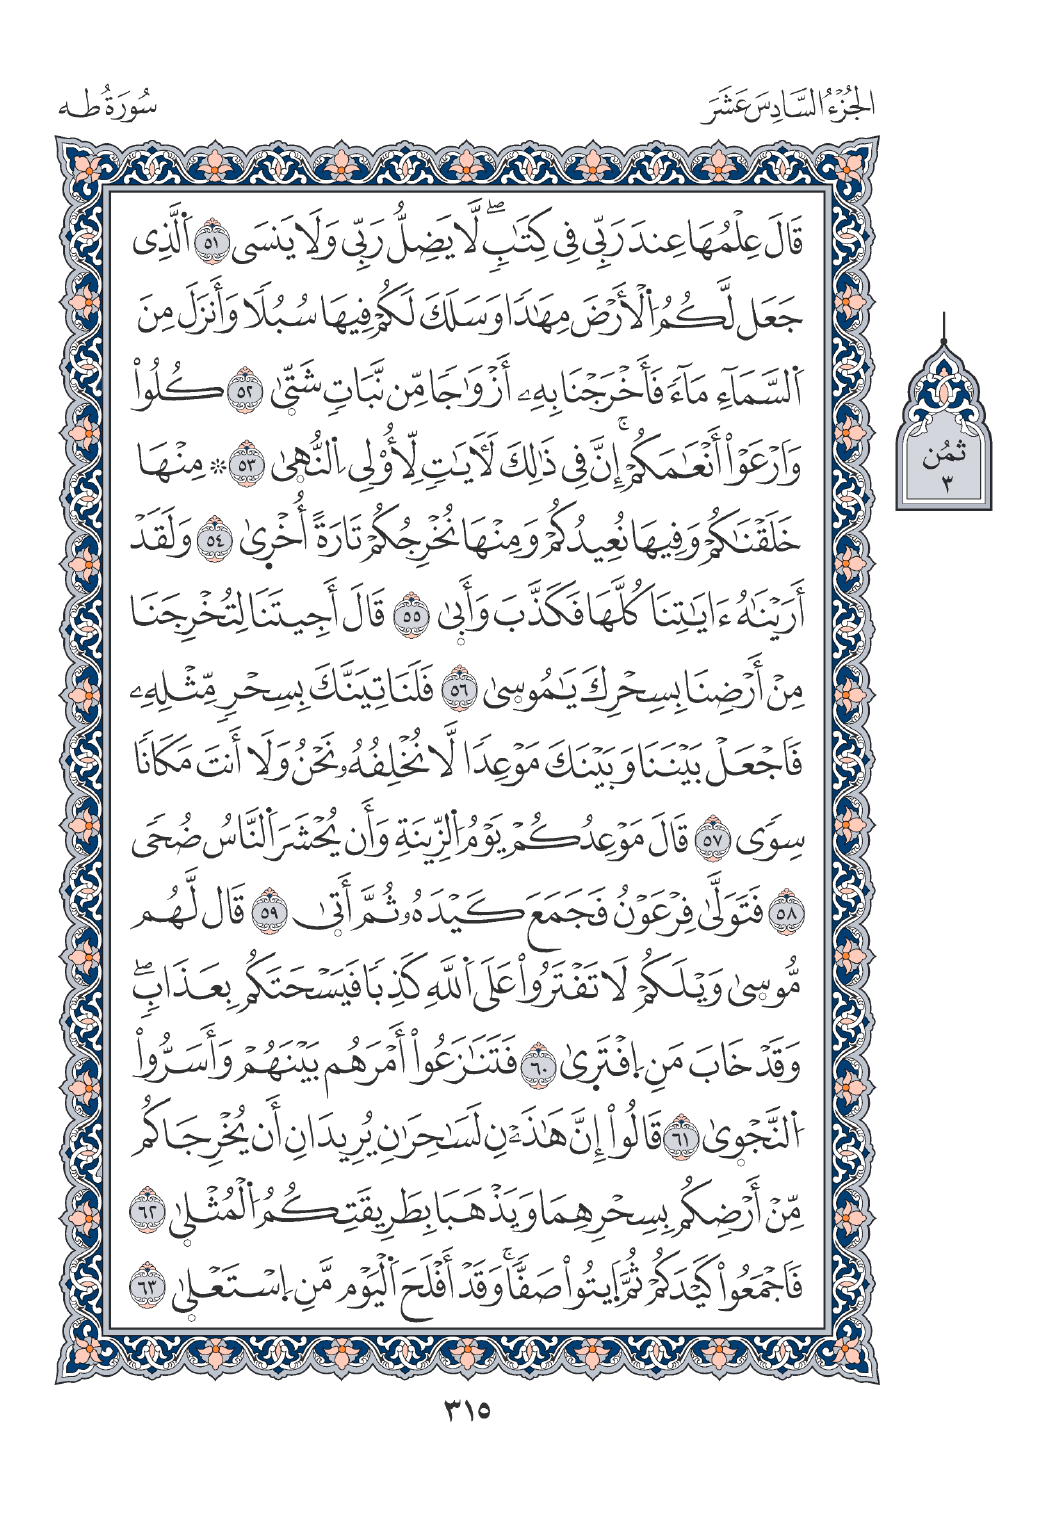 الجُزْءُ السَّادِسَ عَشَرَ
سُورَةُ طه
قَالَ عِلْمُهَا عِندَ رَبِّى فِى كِتَٰبٖۖ لَّا يَضِلُّ رَبِّى وَلَا يَنسَى ٥١ اَ۬لَّذِى
جَعَل لَّكُمُ اُ۬لْأَرْضَ مِهَٰدٗا وَسَلَكَ لَكُمْ فِيهَا سُبُلٗا وَأَنزَلَ مِنَ
اَ۬لسَّمَآءِ مَآءٗ فَأَخْرَجْنَا بِهِۦ أَزْوَٰجٗا مِّن نَّبَاتٖ شَتّ۪ىٰ ٥٢ كُلُواْ
وَارْعَوْاْ أَنْعَٰمَكُمْۚ إِنَّ فِى ذَٰلِكَ لَأٓيَٰتٖ لِّأُوْلِى اِ۬لنُّه۪ىٰ ٥٣ ۞ مِنْهَا
خَلَقْنَٰكُمْ وَفِيهَا نُعِيدُكُمْ وَمِنْهَا نُخْرِجُكُمْ تَارَةً أُخْر۪ىٰ ٥٤ وَلَقَدْ
أَرَيْنَٰهُ ءَايَٰتِنَا كُلَّهَا فَكَذَّبَ وَأَب۪ىٰ ٥٥ قَالَ أَجِيتَنَا لِتُخْرِجَنَا
مِنْ أَرْضِنَا بِسِحْرِكَ يَٰمُوس۪ىٰ ٥٦ فَلَنَاتِيَنَّكَ بِسِحْرٖ مِّثْلِهِۦ
فَاجْعَلْ بَيْنَنَا وَبَيْنَكَ مَوْعِدٗا لَّا نُخْلِفُهُۥ نَحْنُ وَلَا أَنتَ مَكَانٗا
سِوٗى ٥٧ قَالَ مَوْعِدُكُمْ يَوْمُ اُ۬لزِّينَةِ وَأَن يُحْشَرَ اَ۬لنَّاسُ ضُحٗى
٥٨ فَتَوَلَّىٰ فِرْعَوْنُ فَجَمَعَ كَيْدَهُۥ ثُمَّ أَت۪ىٰ ٥٩ قَال لَّهُم
مُّوس۪ىٰ وَيْلَكُمْ لَا تَفْتَرُواْ عَلَى اَ۬للَّهِ كَذِبٗا فَيَسْحَتَكُم بِعَذَابٖۖ
وَقَدْ خَابَ مَنِ اِ۪فْتَر۪ىٰ ٦٠ فَتَنَٰزَعُواْ أَمْرَهُم بَيْنَهُمْ وَأَسَرُّواْ
اُ۬لنَّجْو۪ىٰ ٦١ قَالُواْ إِنَّ هَٰذَيْنِ لَسَٰحِرَٰنِ يُرِيدَانِ أَن يُخْرِجَاكُم
مِّنْ أَرْضِكُم بِسِحْرِهِمَا وَيَذْهَبَا بِطَرِيقَتِكُمُ اُ۬لْمُثْل۪ىٰ ٦٢
فَاجْمَعُواْ كَيْدَكُمْ ثُمَّ اَ۪يتُواْ صَفّٗاۚ وَقَدْ أَفْلَحَ اَ۬لْيَوْم مَّنِ اِ۪سْتَعْل۪ىٰ ٦٣
ثُمُن
٣
٣١٥